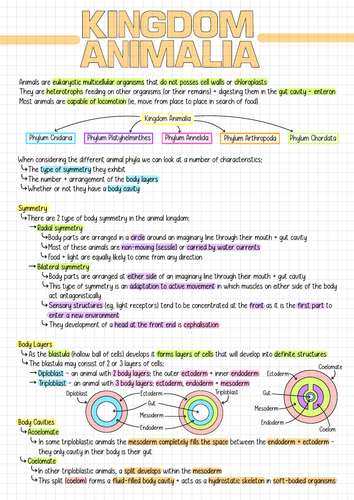 KINGDOM
ANIMALIA
Animals are eukaryotic multicellular organisms that do not posses cell walls or chloroplasts
They are heterotrophs feeding on other organisms (or their remains) + digesting them in the gut cavity - enteron
Most animals are capable of locomotion (ie, move from place to place in search of food)
Kingdom Animalia
Phylum Cnidaria Phylum Platyhelminthes Phylum Annelida Phylum Arthropoda Phylum Chordata
When considering the different animal phyla we can look at a number of characteristics;
↳The type of symmetry they exhibit
↳The number + arrangement of the body layers
↳Whether or not they have a body cavity
Symmetry
↳There are 2 type of body symmetry in the animal kingdom;
→ Radial symmetry
↳Body parts are arranged in a circle around an imaginary line through their mouth + gut cavity
↳Most of these animals are non-moving (sessile) or carried by water currents
↳Food + light are equally likely to come from any direction
→ Bilateral symmetry
↳Body parts are arranged at either side of an imaginary line through their mouth + gut cavity
↳This type of symmetry is an adaptation to active movement in which muscles on either side of the body
act antagonistically
↳Sensory structures (eg, light receptors) tend to be concentrated at the front as it is the first part to
enter a new environment
↳They development of a head at the front end is cephalisation
Body Layers
↳As the blastula (hollow ball of cells) develops it forms layers of cells that will develop into definite structures
↳The blastula may consist of 2 or 3 layers of cells;
→ Diploblast - an animal with 2 body layers; the outer ectoderm + inner endoderm
→ Triploblast - an animal with 3 body layers; ectoderm, endoderm + mesoderm
Diploblast
Ectoderm
Gut
Mesoderm
Endoderm
Triploblast
Coelomate
Ectoderm
Gut
Mesoderm
Endoderm
Coelom
Body Cavities
↳Acoelomate
↳In some triploblastic animals the mesoderm completely fills the space between the endoderm + ectoderm -
they only cavity in their body is their gut
↳Coelomate
↳In other triploblastic animals, a split develops within the mesoderm
↳This split (coelom) forms a fluid-filled body cavity + acts as a hydrostatic skeleton in soft-bodied organisms